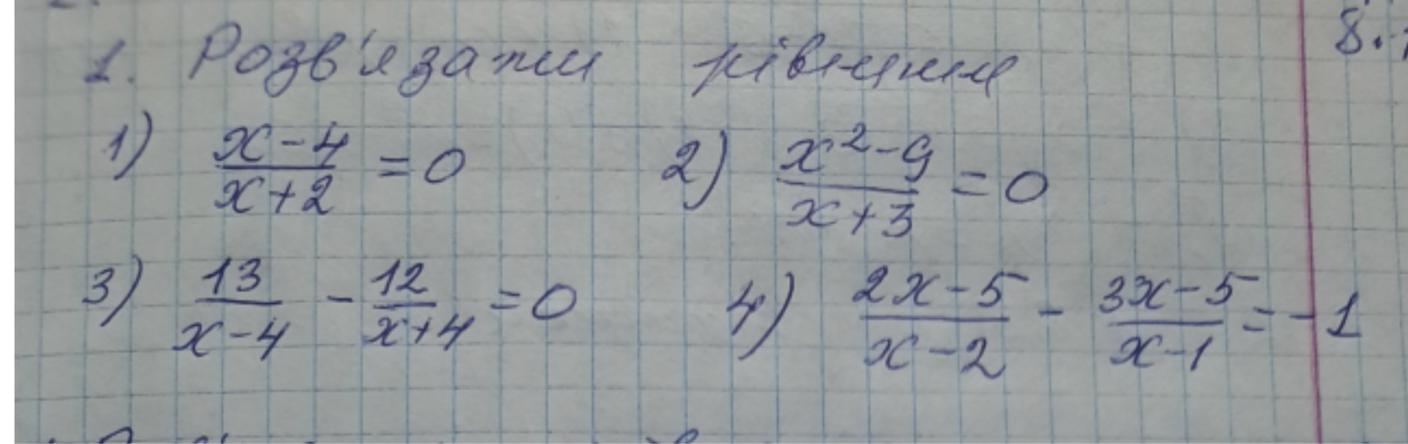 1. Розв'язати рівняння
1) \frac{x-4}{x+2} = 0 2) \frac{x^2-9}{x+3} = 0
3) \frac{13}{x-4} - \frac{12}{x+4} = 0 4) \frac{2x-5}{x-2} - \frac{3x-5}{x-1} = -1